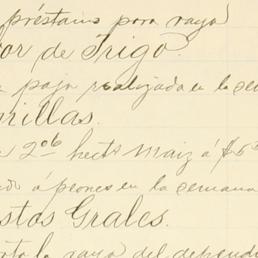 préstamo para raya
or de Trigo.
paja realizada en la se
rillas.
2.06 hects maiz á $6.5
do á peones en la semana
stos Grales.
rto la raya del depend